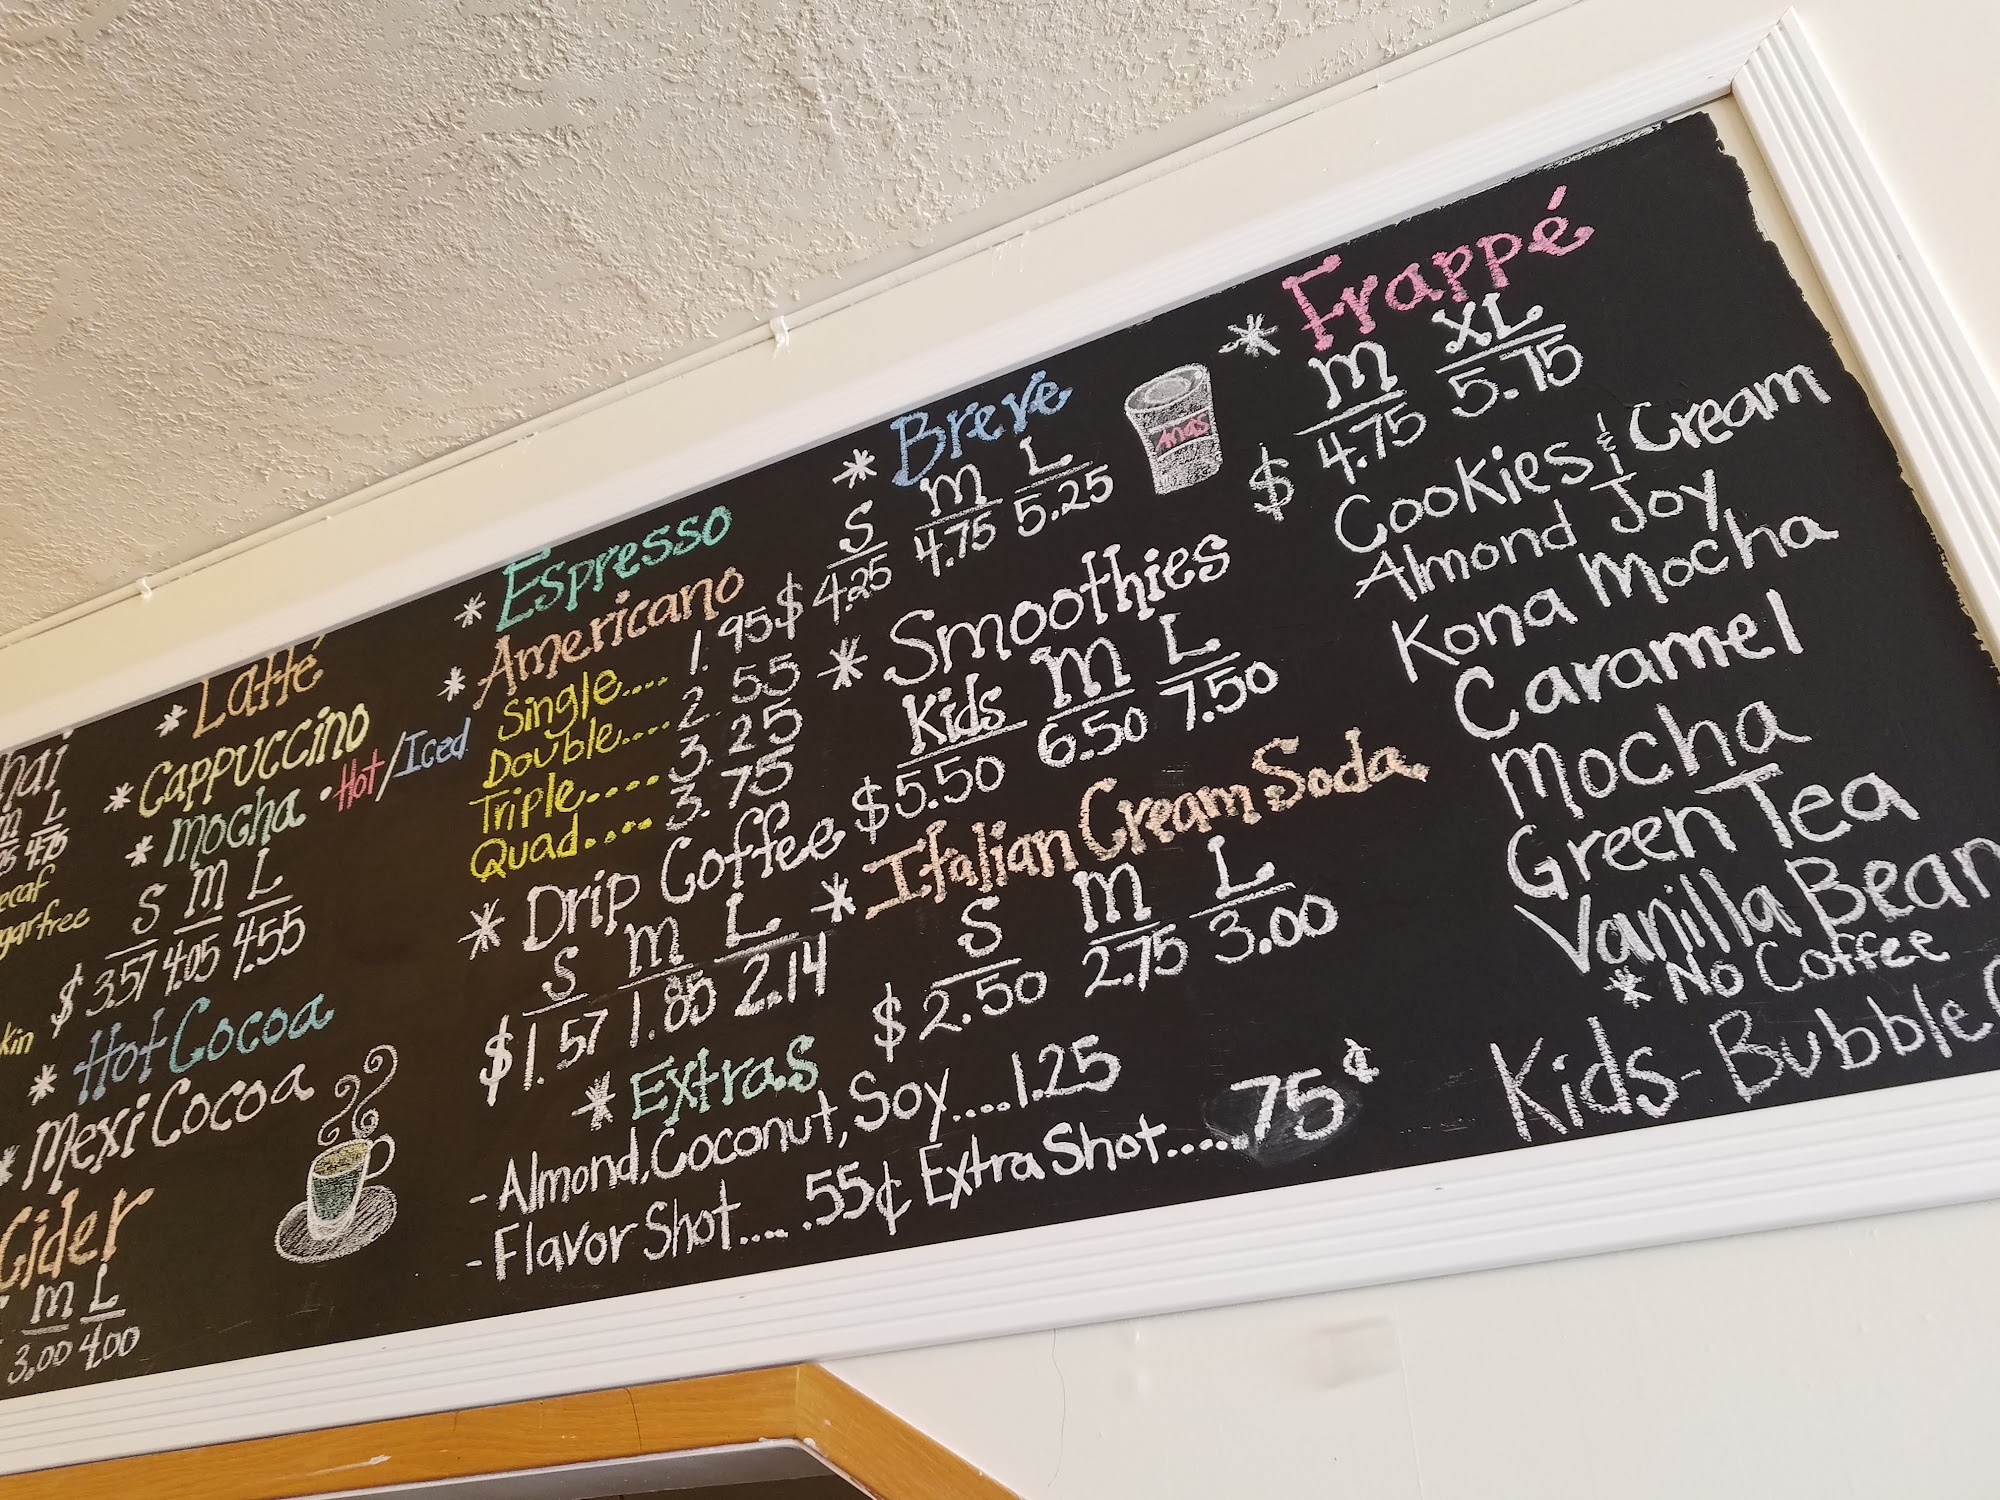 M L
4.75
* Latté
* Cappuccino
* Mocha • Hot/Iced
S M L
$ 3.57 4.05 4.55
* Hot Cocoa
* Mexi Cocoa
Cider
M L
3.00 4.00
* Espresso
* Americano
Single.... 1.95
Double.... 2.55
Triple..... 3.25
Quad.... 3.75
* Drip Coffee
S M L
$1.57 1.85 2.14
* Breve
S M L
$ 4.25 4.75 5.25
* Smoothies
Kids M L
$5.50 6.50 7.50
* Italian Cream Soda
S M L
$2.50 2.75 3.00
* Extras
- Almond, Coconut, Soy....1.25
- Flavor Shot.... .55¢ Extra Shot.....75¢
Anas
* Frappé
M XL
$ 4.75 5.75
Cookies & Cream
Almond Joy
Kona Mocha
Caramel
Mocha
Green Tea
Vanilla Bean
* No Coffee
Kids - Bubble